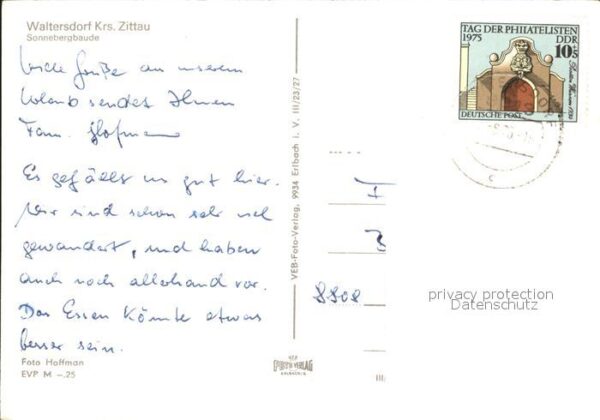 Waltersdorf Krs. Zittau
Sonnebergbaude
Viele Grüße an unserem
Urlaub sendet Ihnen
Fam. Hofmann
Es gefällt uns gut hier.
Wir sind schon sehr viel
gewandert, und haben
auch noch allerhand vor.
Das Essen könnte etwas
besser sein.
Foto Hoffman
EVP M –.25
VEB-Foto-Verlag, 9934 Erlbach i. V. III/23/27
VEB
FOTO VERLAG
ERLBACH/V.
III/
TAG DER PHILATELISTEN
1975 DDR
10+5
DEUTSCHE POST
8808
privacy protection
Datenschutz